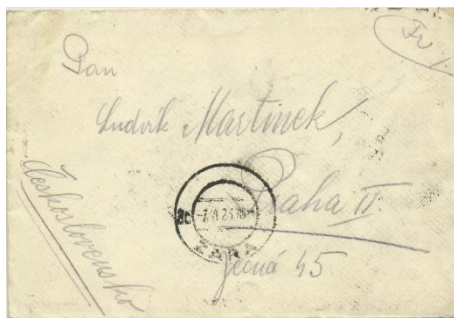 Pan
Ludvík Martinek,
Praha II
Ječná 45
Československo
ZARA